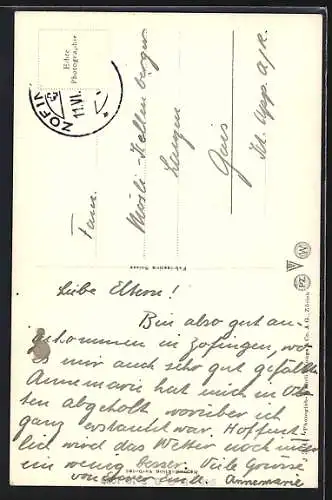 Echte
Photographie
ZOFIN
11.VI.
Fam.
Mösli-Kellenberger
Gais
Kt. App. A/R.
Fabrication Suisse
Liebe Eltern!
Bin also gut an-
gekommen in Zofingen, wo
es mir auch sehr gut gefällt.
Annemarie hat mich in Ol-
ten abgeholt, worüber ich
ganz erstaunt war. Hoffent-
lich wird das Wetter noch
ein wenig besser. Viele Grüsse
von Annemarie